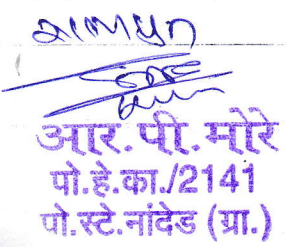 आर.पी.मोरे
पो.हे.का./2141
पो.स्टे.नांदेड (ग्रा.)